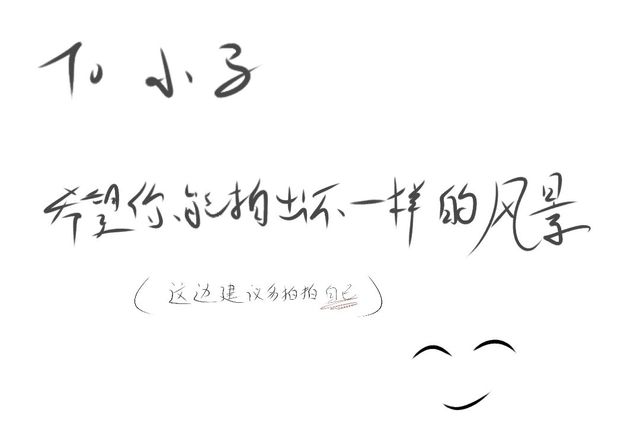 To 小子
希望你能拍出不一样的风景
(这边建议多拍拍自己)